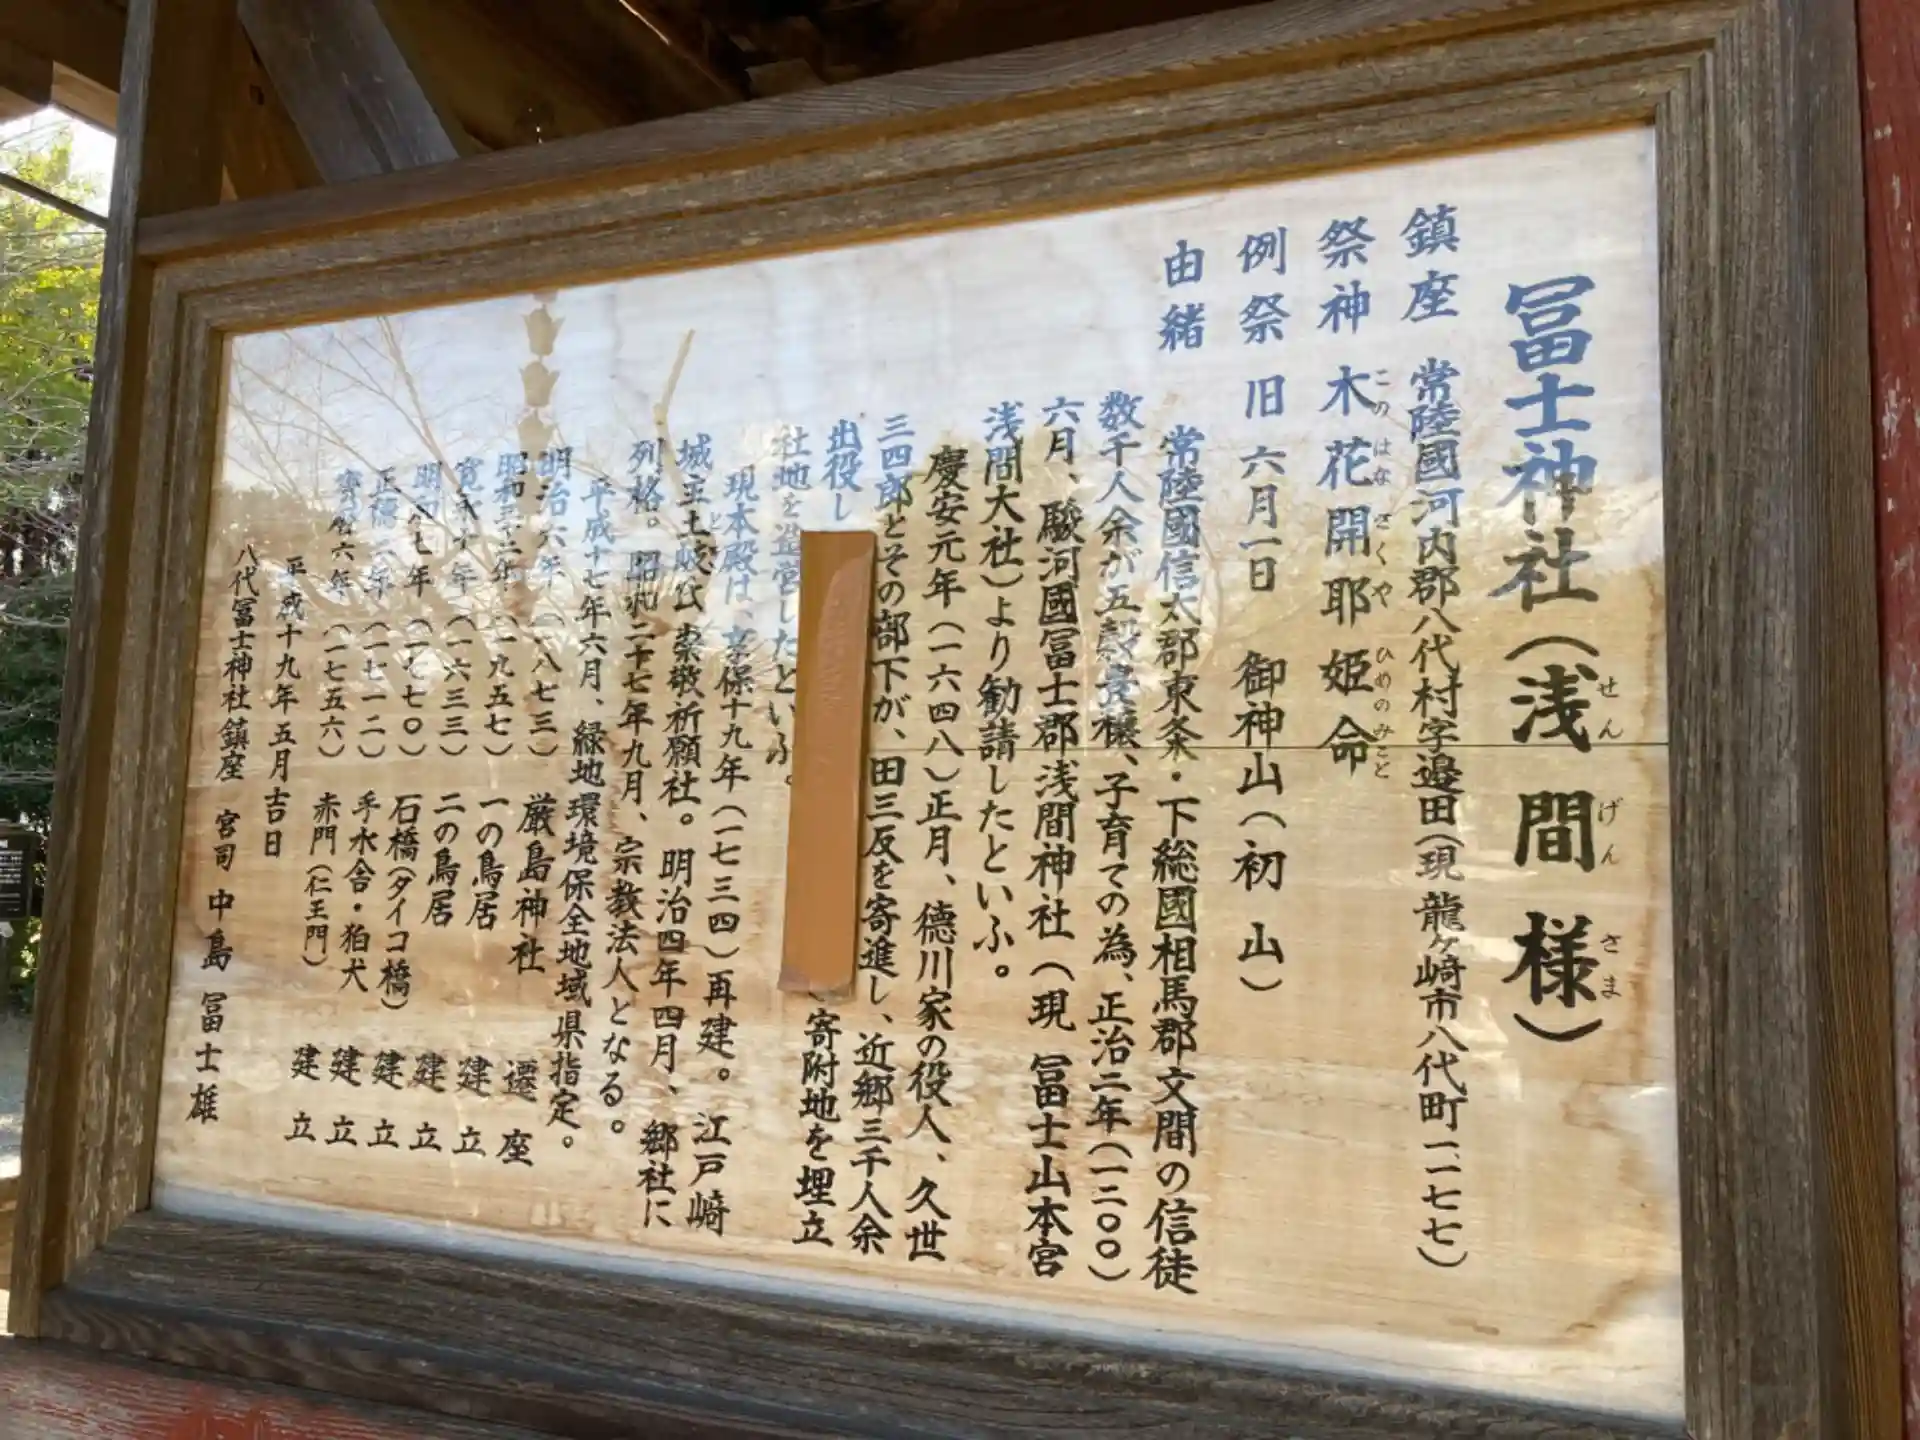 冨士神社（浅間様）
せんげんさま
鎮座 常陸國河内郡八代村字邉田（現 龍ヶ崎市八代町一一七七）
祭神 木花開耶姫命
このはなさくやひめのみこと
例祭 旧六月一日 御神山（初山）
由緒
常陸國信太郡東条・下総國相馬郡文間の信徒
数千人余が五穀豊穣、子育ての為、正治二年（一二〇〇）
六月、駿河國冨士郡浅間神社（現 冨士山本宮
浅間大社）より勧請したといふ。
慶安元年（一六四八）正月、德川家の役人、久世
三四郎とその部下が、田三反を寄進し、近郷三千人余
出役し 寄附地を埋立
社地を造営したといふ。
現本殿は、享保十九年（一七三四）再建。江戸崎
城主土岐氏崇敬祈願社。明治四年四月、郷社に
とき
列格。昭和二十七年九月、宗教法人となる。
平成十七年六月、緑地環境保全地域県指定。
明治六年（一八七三） 厳島神社 遷座
昭和三二年（一九五七） 一の鳥居 建立
寛永十年（一六三三） 二の鳥居 建立
明和七年（一七七〇） 石橋（タイコ橋） 建立
正徳二年（一七一二） 手水舎・狛犬 建立
宝暦六年（一七五六） 赤門（仁王門） 建立
平成十九年五月吉日
八代冨士神社鎮座 宮司 中島冨士雄